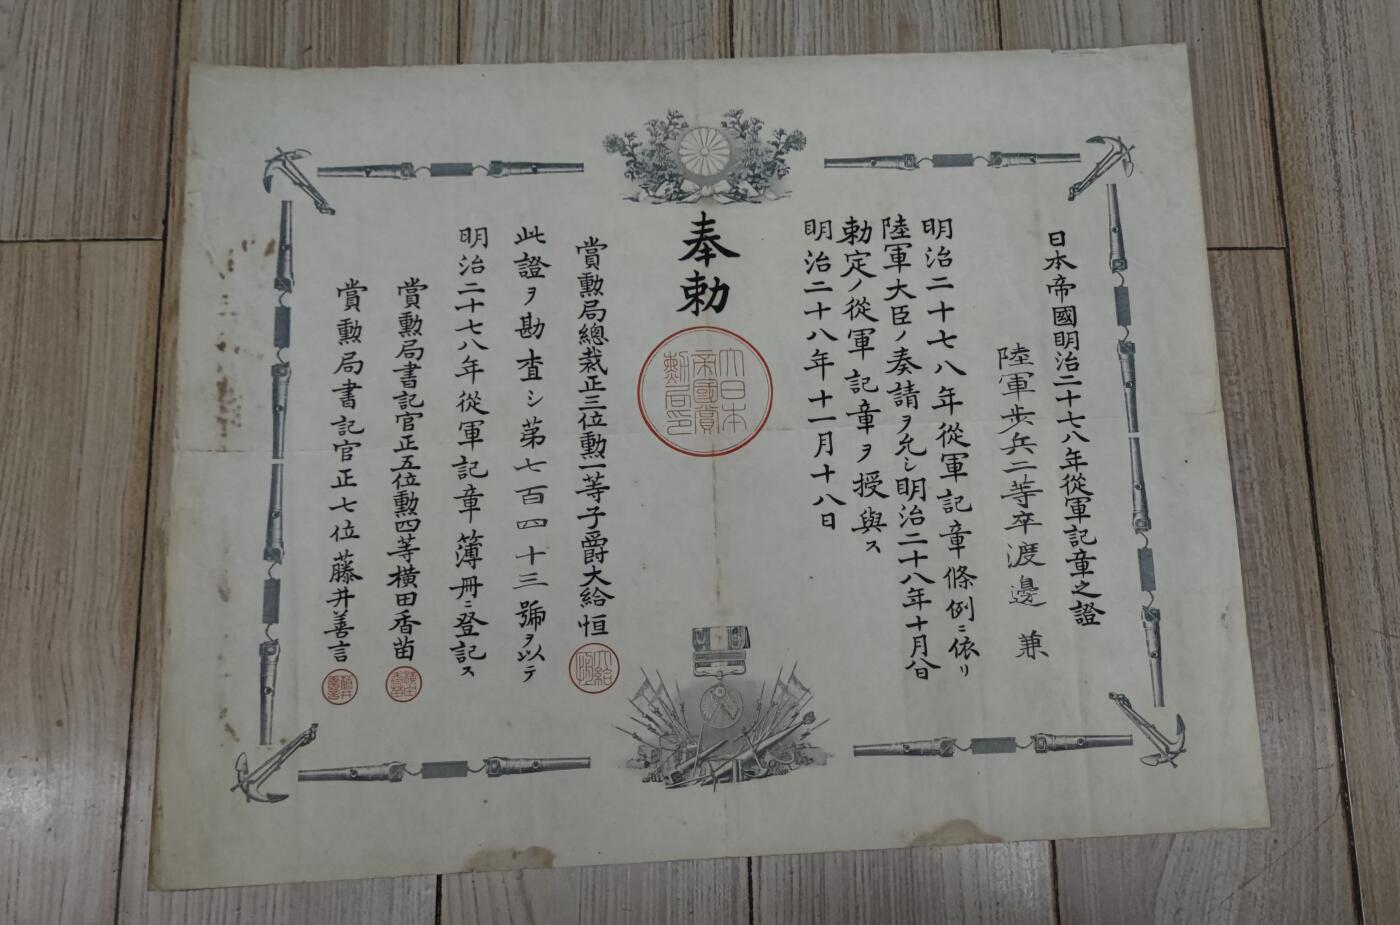 日本帝國明治二十七八年從軍記章之證
陸軍歩兵二等卒渡邊 兼
明治二十七八年從軍記章條例ニ依リ
陸軍大臣ノ奏請ヲ允シ明治二十八年十月八日
勅定ノ從軍記章ヲ授與ス
明治二十八年十一月十八日
奉勅
大日本
帝國賞
勲局印
賞勲局總裁正三位勲一等子爵大給恒
此證ヲ勘査シ第七百四十三號ヲ以テ
明治二十七八年從軍記章簿冊ニ登記ス
賞勲局書記官正五位勲四等横田香苗
賞勲局書記官正七位藤井善言